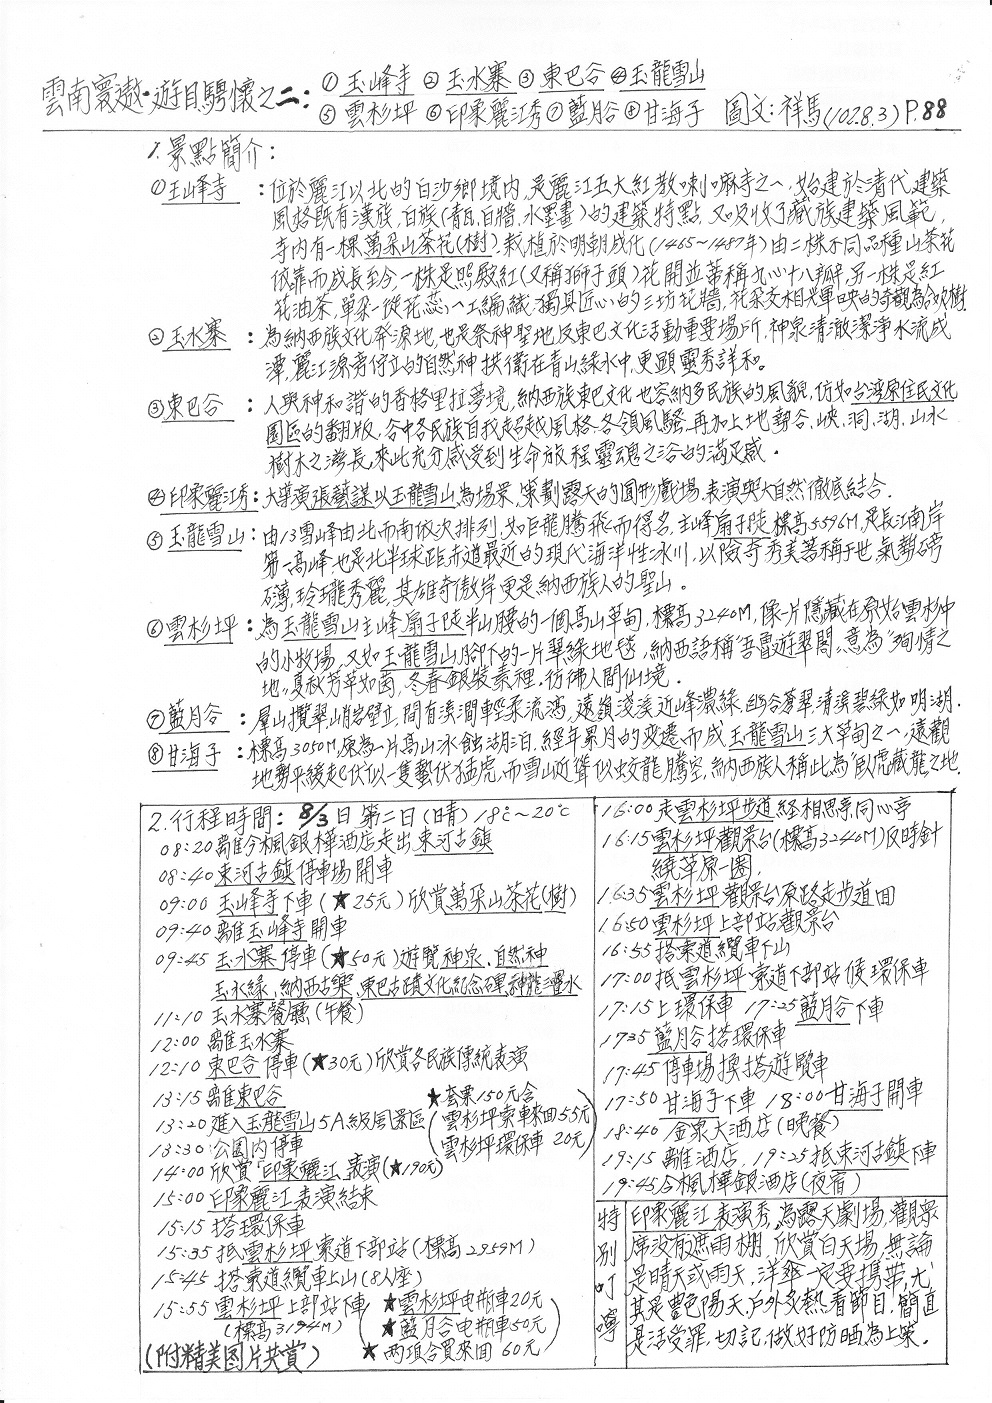 雲南寰遨·遊目騁懷之二：①玉峰寺 ②玉水寨 ③東巴谷 ④玉龍雪山
⑤雲杉坪 ⑥印象麗江秀 ⑦藍月谷 ⑧甘海子 圖文：祥馬(102.8.3) P.88
1. 景點簡介：
①玉峰寺：位於麗江以北的白沙鄉境內，是麗江五大紅教喇嘛寺之一，始建於清代，建築
風格既有漢族，白族(青瓦，白牆，水墨畫)的建築特點，又吸收了藏族建築風範，
寺內有一棵萬朵山茶花(樹)，栽植於明朝成化(1465～1487年)由二株不同品種山茶花
依靠而成長至今，一株是照殿紅(又稱獅子頭)花開並蒂稱九心十八瓣，另一株是紅
花油茶，單朵一從花蕊，人工編織獨具匠心的三坊花牆，花朵交相光輝映的奇觀為合歡樹.
②玉水寨：為納西族文化發源地，也是祭神聖地及東巴文化活動重要場所，神泉清澈潔淨水流成
潭，麗江源旁佇立的自然神扶衛在青山綠水中，更顯靈秀詳和。
③東巴谷：人與神和諧的香格里拉夢境，納西族東巴文化也容納多民族的風貌，仿如台灣原住民文化
園區的翻版，谷中各民族自我超越風格，各領風騷，再加上地熱谷、峽、洞、湖、山水
樹木之灣長，來此充分感受到生命旅程靈魂之洽的滿足感．
④印象麗江秀：大導演張藝謀以玉龍雪山為場景，策劃露天的圓形戲場，表演與大自然徹底結合．
⑤玉龍雪山：由13雪峰由北而南依次排列，如巨龍騰飛而得名，主峰扇子陡標高5596M，是長江南岸
第一高峰，也是北半球距赤道最近的現代海洋性冰川，以險奇秀美著稱于世，氣勢磅
礡，玲瓏秀麗，其雄奇傲岸更是納西族人的聖山。
⑥雲杉坪：為玉龍雪山主峰扇子陡半山腰的一個高山草甸，標高3240M，像一片隱藏在原始雲杉中
的小牧場，又如玉龍雪山腳下的一片翠綠地毯，納西語稱"吾魯遊翠閣"，意為"殉情之
地"，夏秋芳草如茵，冬春銀裝素裡，彷彿人間仙境．
⑦藍月谷：屋山攬翠，峭岩壁立，間有溪澗輕柔流瀉，遠嶺淺淡近峰濃綠，幽谷蒼翠，清溪碧綠如明湖．
⑧甘海子：標高3050M，原為一片高山冰蝕湖泊，經年累月的變遷而成玉龍雪山三大草甸之一，遠觀
地勢平緩起伏似一隻蟄伏猛虎，而雪山近聳似蛟龍騰空，納西族人稱此為"臥虎藏龍"之地．
2. 行程時間：8/3日 第二日(晴) 18℃～20℃
08:20 離今楓銀樺酒店走出束河古鎮
08:40 束河古鎮停車場開車
09:00 玉峰寺下車(★25元)欣賞萬朵山茶花(樹)
09:40 離玉峰寺開車
09:45 玉水寨停車(★50元)遊覽神泉．自然神
玉水緣，納西古樂，東巴古蹟文化紀念碑，神龍三疊水
11:10 玉水寨餐廳(午餐)
12:00 離玉水寨
12:10 東巴谷停車(★30元)欣賞各民族傳統表演
13:15 離東巴谷
13:20 進入玉龍雪山5A級風景區(★套票150元含
雲杉坪索車來回55元
雲杉坪環保車20元)
13:30 公園內停車
14:00 欣賞「印象麗江」表演(★190元)
15:00 印象麗江表演結束
15:15 搭環保車
15:35 抵雲杉坪索道下部站(標高2959M)
15:45 搭索道纜車上山(8人座)
15:55 雲杉坪上部站下車(標高3194M)
(★雲杉坪电瓶車20元
★藍月谷电瓶車50元
★兩項合買來回60元)
(附精美图片共賞)
16:00 走雲杉坪步道經相思亭，同心亭
16:15 雲杉坪觀景台(標高3240M)反時針
繞草原一圈．
16:35 雲杉坪觀景台原路走步道回
16:50 雲杉坪上部站觀景台
16:55 搭索道纜車下山
17:00 抵雲杉坪索道下部站候環保車
17:15 上環保車 17:25 藍月谷下車
17:35 藍月谷搭環保車
17:45 停車場換搭遊覽車
17:50 甘海子下車 18:00 甘海子開車
18:40 金泉大酒店(晚餐)
19:15 離酒店，19:25 抵束河古鎮下車
19:45 今楓樺銀酒店(夜宿)
特別叮嚀
印象麗江表演秀，為露天劇場，觀眾
席沒有遮雨棚，欣賞白天場，無論
是晴天或雨天，洋傘一定要攜帶，尤
其是艷陽天，戶外炙熱看節目，簡直
是活受罪，切記，做好防晒為上策．